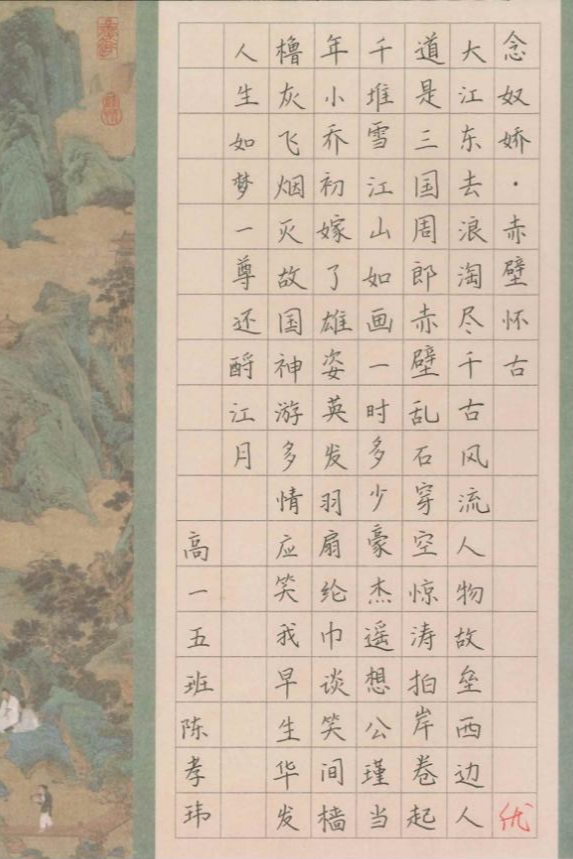 念奴娇·赤壁怀古
优
大江东去浪淘尽千古风流人物故垒西边人
道是三国周郎赤壁乱石穿空惊涛拍岸卷起
千堆雪江山如画一时多少豪杰遥想公瑾当
年小乔初嫁了雄姿英发羽扇纶巾谈笑间樯
橹灰飞烟灭故国神游多情应笑我早生华发
人生如梦一尊还酹江月
高一五班陈孝玮